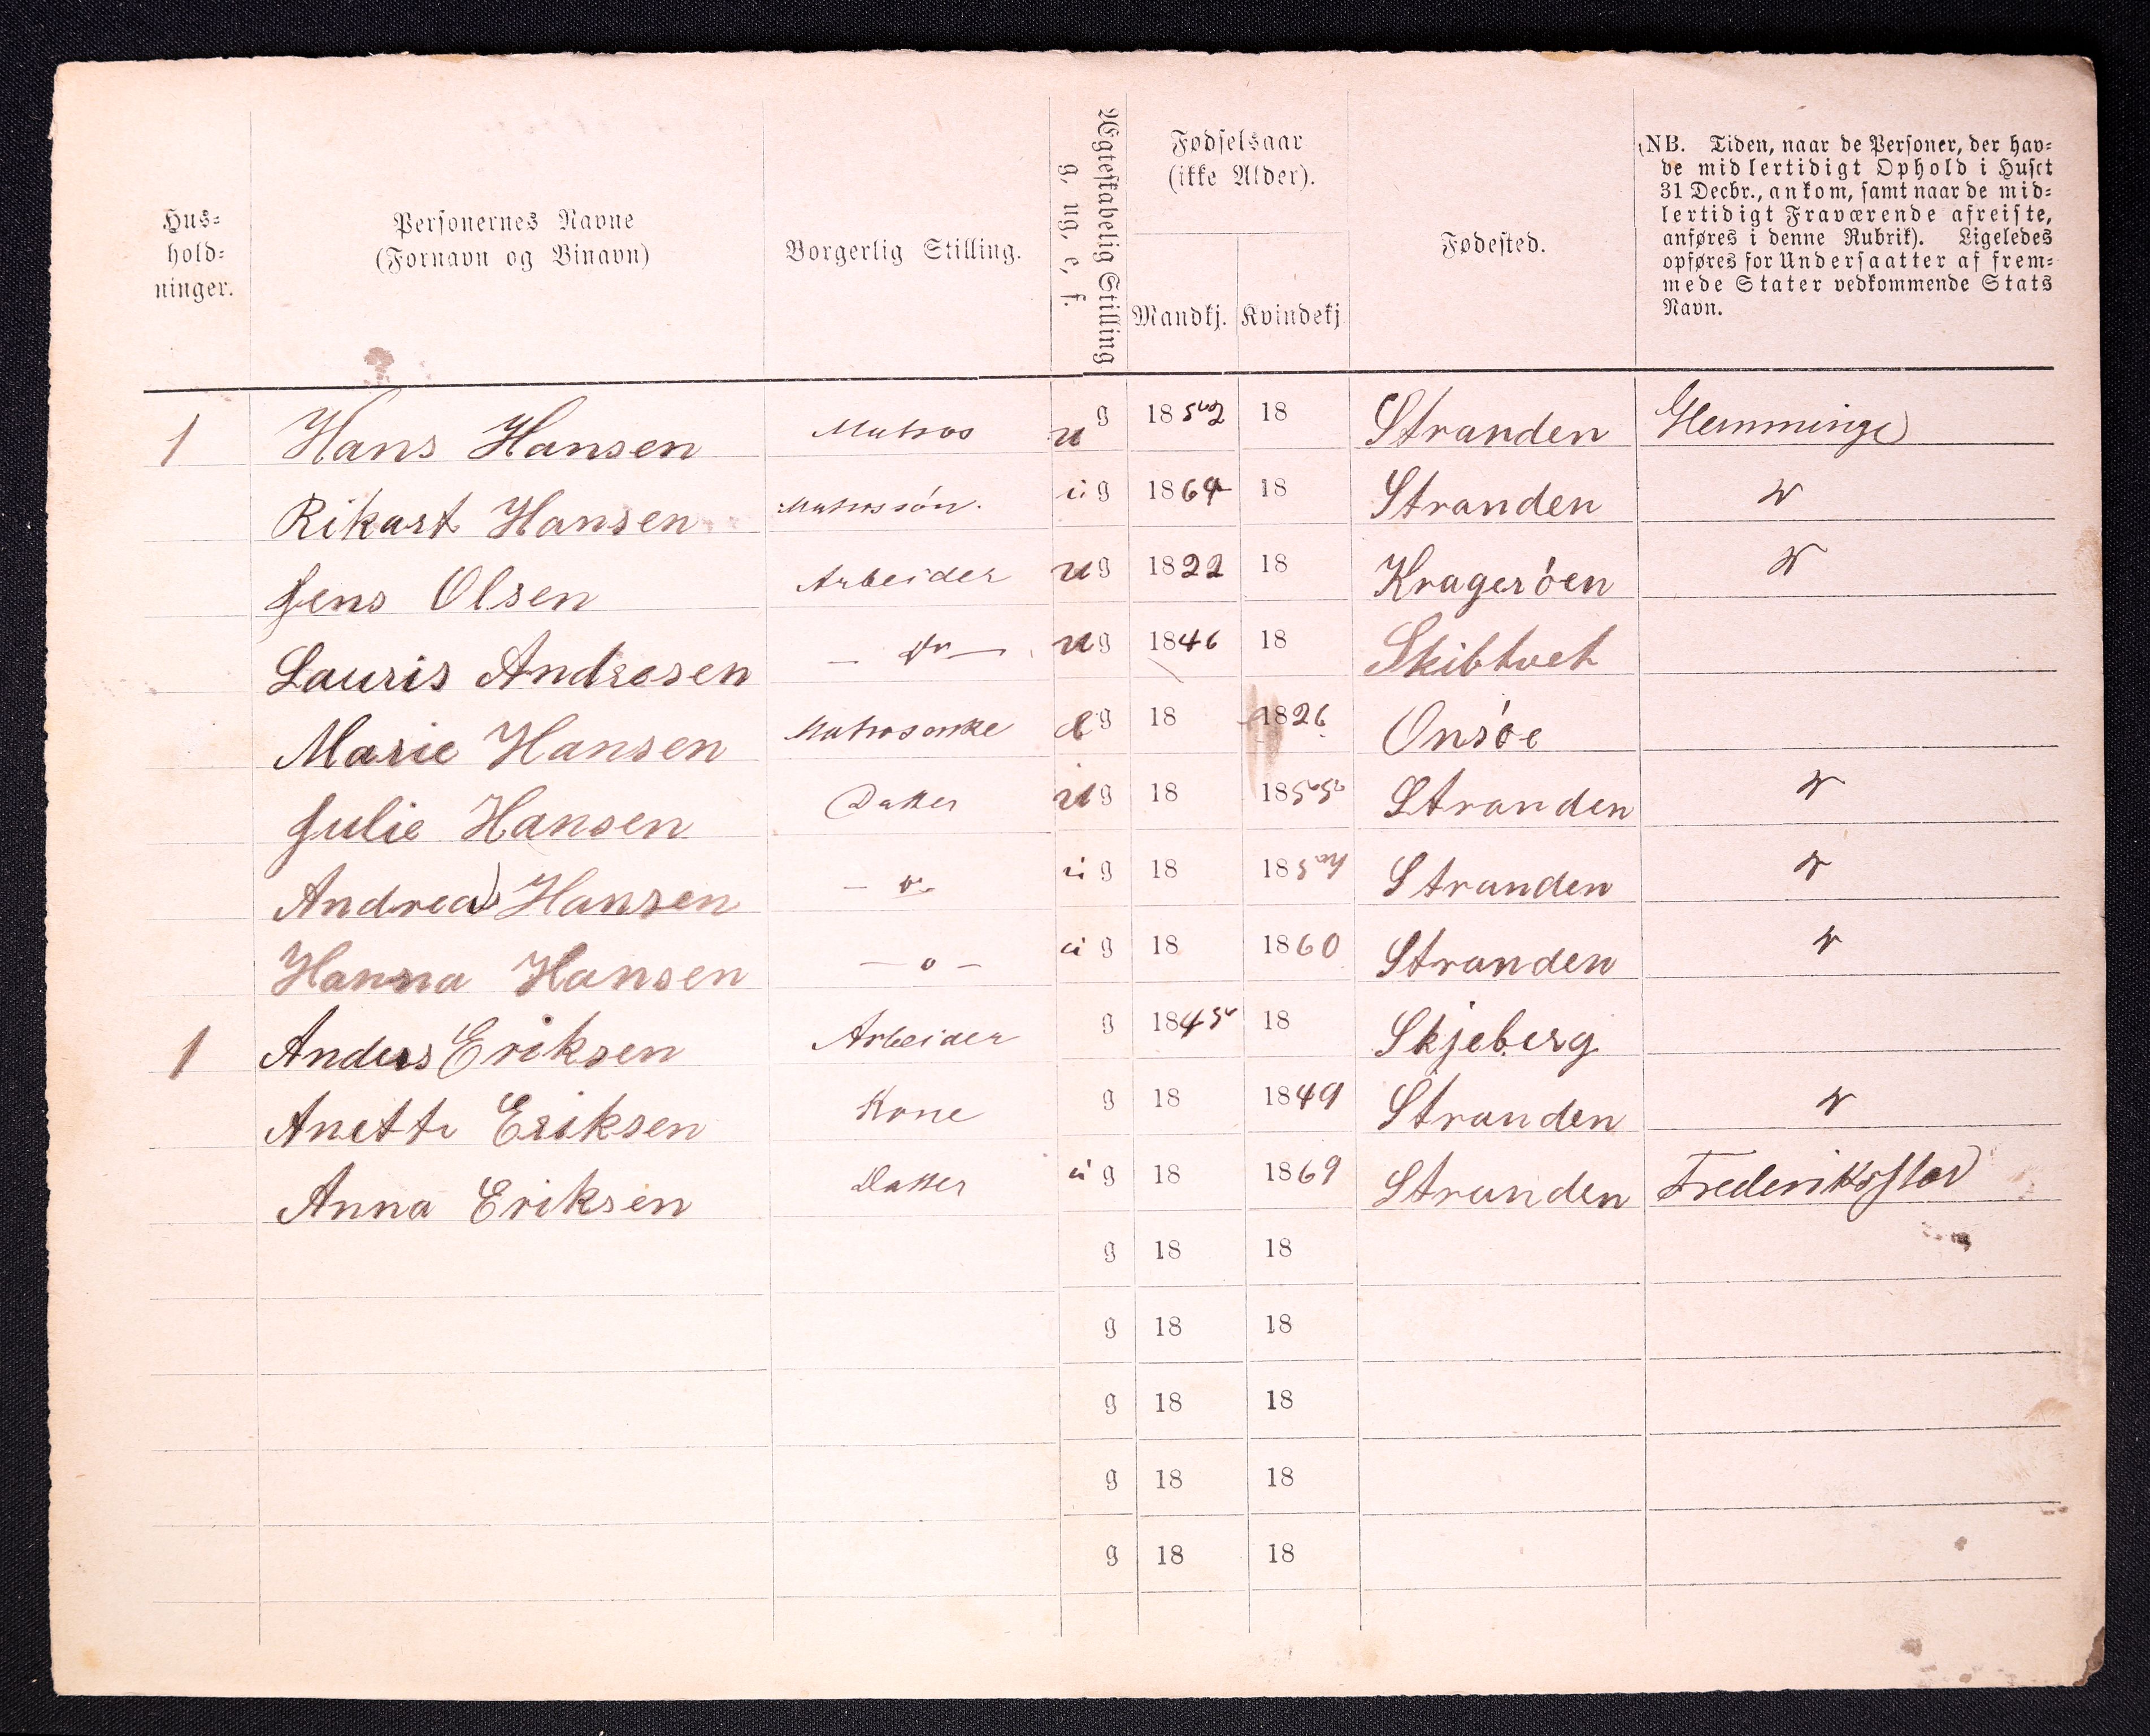 Hus=
hold=
ninger.
Personernes Navne
(Fornavn og Binavn)
Borgerlig Stilling.
Ægteskabelig Stilling
g, ug, e, f.
Fødselsaar
(ikke Alder).
Mandkj. Kvindekj
Fødested.
(NB. Tiden, naar de Personer, der hav=
de midlertidigt Ophold i Huset
31 Decbr., ankom, samt naar de mid=
lertidigt Fraværende afreiste,
anføres i denne Rubrik). Ligeledes
opføres for Undersaatter af frem=
mede Stater vedkommende Stats
Navn.
1 Hans Hansen Matros u g 1852 18 Stranden Glemminge
Rikart Hansen Matrossön. u g 1864 18 Stranden
Jens Olsen Arbeider u g 1822 18 Krageröen
Lauris Andresen u g 1846 18 Skibtvet
Marie Hansen Matrosenke e g 18 1826 Onsöe
Julie Hansen Datter u g 18 1855 Stranden
Andrea Hansen u g 18 Stranden
Hanna Hansen — o — u g 18 1860 Stranden
1 Anders Eriksen Arbeider g 1845 18 Skjeberg
Anette Eriksen Kone g 18 1849 Stranden
Anna Eriksen Datter u g 18 1869 Stranden Frederikstad
g 18 18
g 18 18
g 18 18
g 18 18
g 18 18